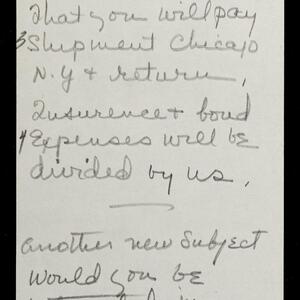 That you will pay
3 Shipment Chicago
N.Y + return,
Insurence + bond
4 Expenses will be
divided by us,
another new subject
would you be